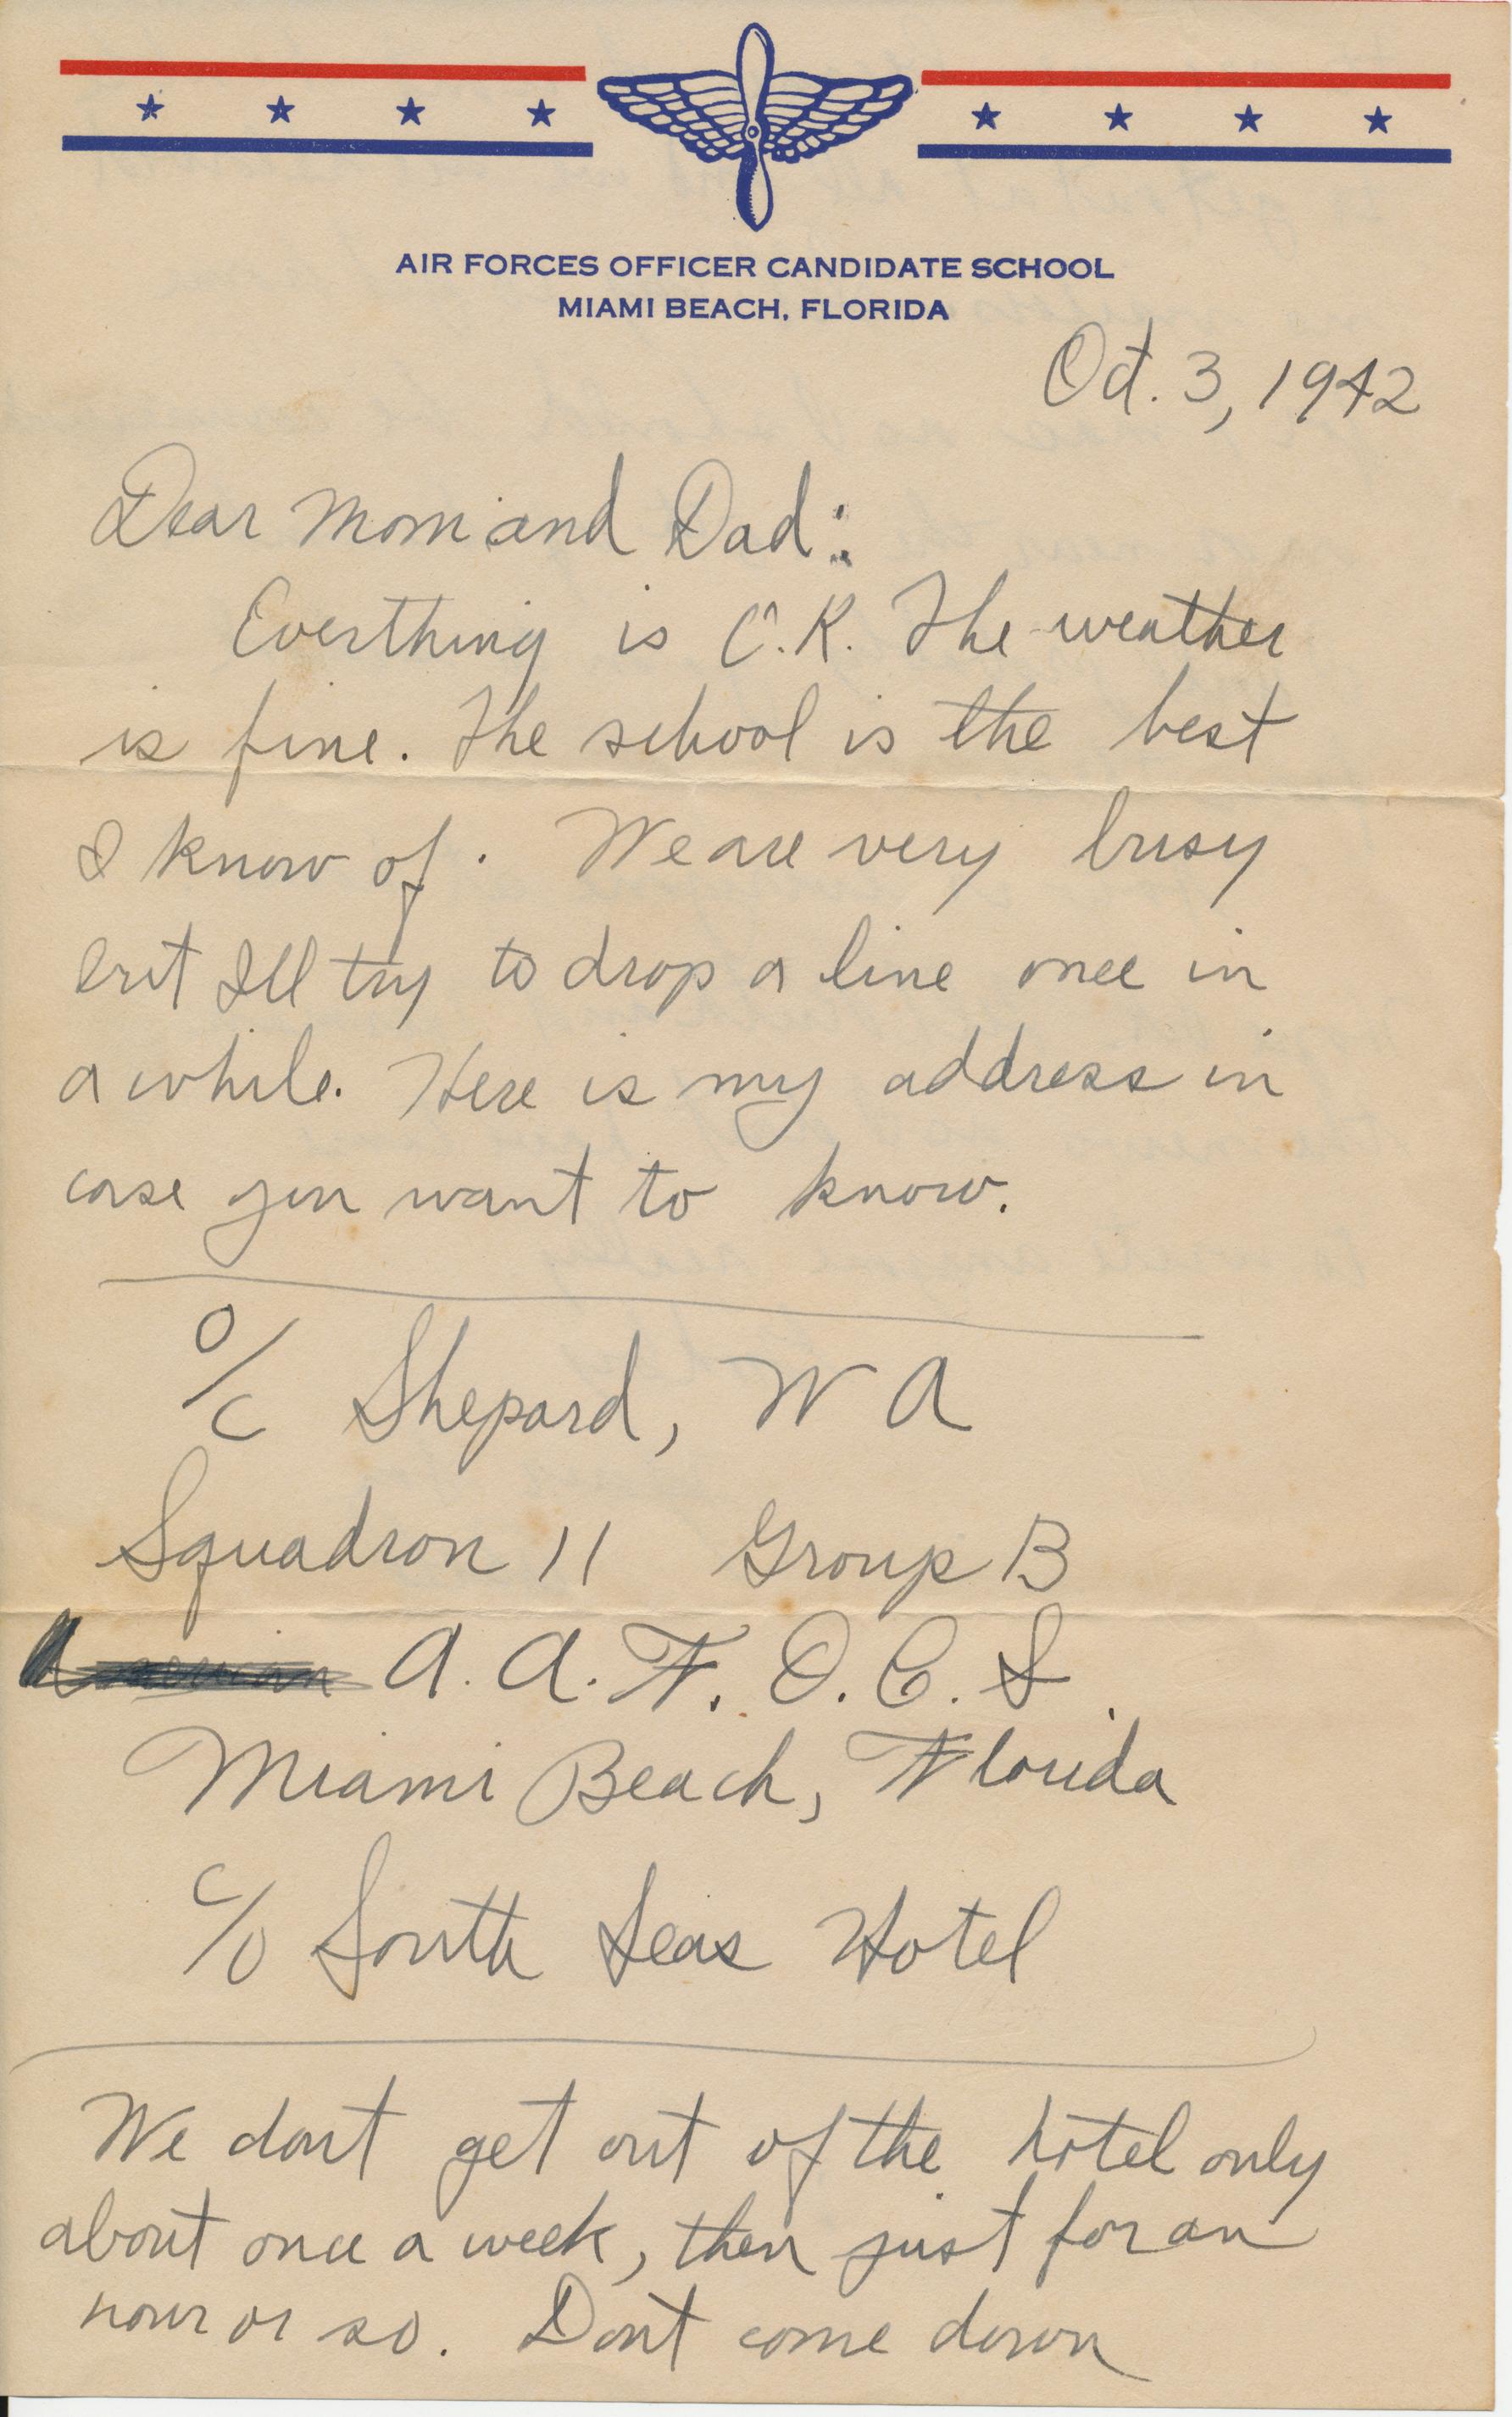 AIR FORCES OFFICER CANDIDATE SCHOOL
MIAMI BEACH, FLORIDA
Oct. 3, 1942
Dear Mom and Dad:
Everthing is O.K. The weather
is fine. The school is the best
I know of. We are very busy
but Ill try to drop a line once in
a while. Here is my address in
case you want to know.
O/C Shepard, W A
Squadron 11 Group B
A. A. F. O. C. S.
Miami Beach, Florida
C/O South Seas Hotel
We dont get out of the hotel only
about once a week, then just for an
hour or so. Dont come down